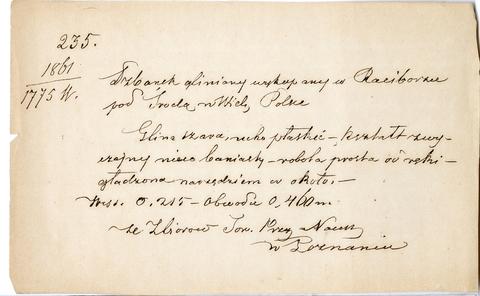 235.
1861
1775 W.
Dzbanek gliniany wykopany w Raciborzu
pod Środą, w Wielk. Polsce
Glina szara, ucho płaskie – kształt zwy-
czajny nieco baniasty – robota prosta od ręki –
gładzona narzędziem w około. –
Wys. 0,215 – Obwodu 0,460 m.
ze Zbiorów Tow. Przy. Nauk
w Poznaniu